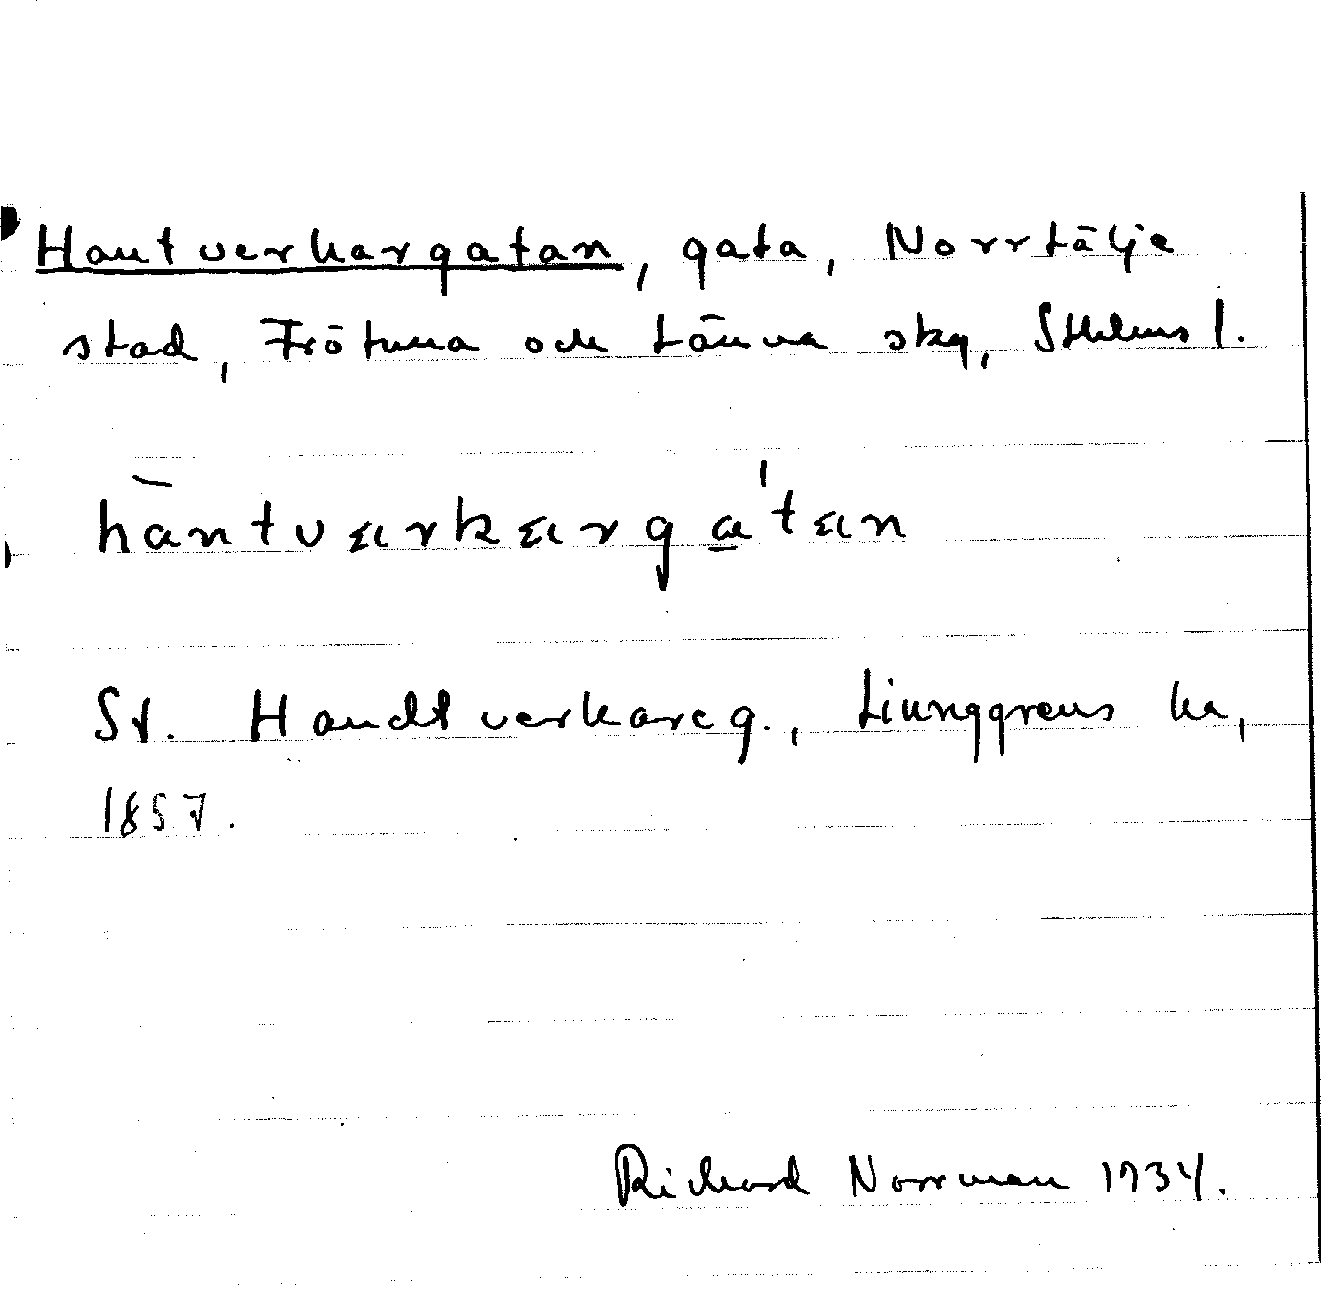 Hantverkargatan, gata, Norrtälje
stad, Frötuna och Länna skg, Sthlms l.
hàntvärkärga'tän
St. Handtverkareg., Liunggrens ka,
1857.
Richard Norrman 1934.